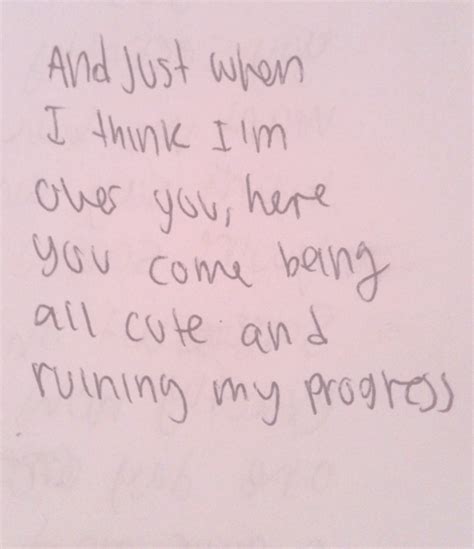 And Just when
I think I'm
over you, here
you come being
all cute and
ruining my progress